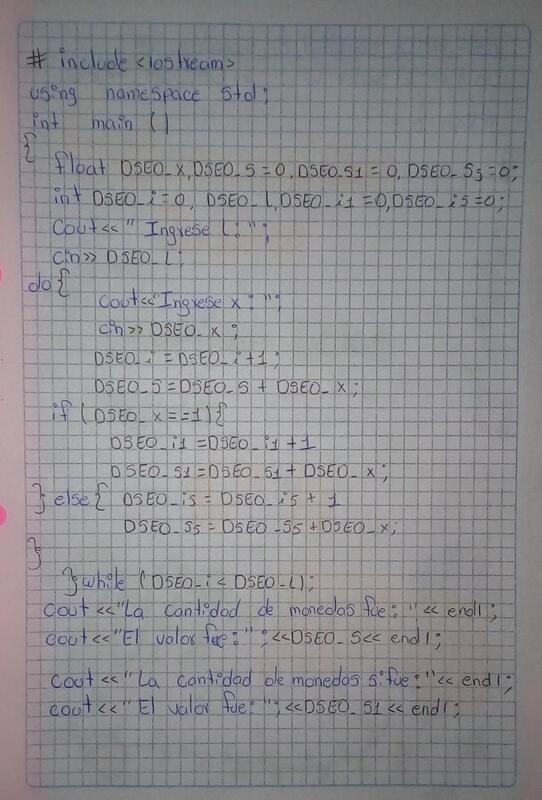 # include <iostream>
using namespace std;
int main ()
{
float DSEO_x, DSEO_S = 0, DSEO_S1 = 0, DSEO_S5 = 0;
int DSEO_i = 0, DSEO_L, DSEO_i1 = 0, DSEO_i5 = 0;
Cout << " Ingrese L: ";
cin >> DSEO_L;
do {
cout << "Ingrese x : ";
cin >> DSEO_x ;
DSEO_i = DSEO_i + 1;
DSEO_S = DSEO_S + DSEO_x ;
if ( DSEO_x == 1) {
DSEO_i1 = DSEO_i1 + 1
DSEO_S1 = DSEO_S1 + DSEO_x ;
} else { DSEO_i5 = DSEO_i5 + 1
DSEO_S5 = DSEO_S5 + DSEO_x;
}
} while (DSEO_i < DSEO_L);
cout << "La cantidad de monedas fue: " << endl ;
cout << "El valor fue: " ; << DSEO_S << endl ;
cout << " La cantidad de monedas s: fue : " << endl ;
cout << " El valor fue: "; << DSEO_S1 << endl ;